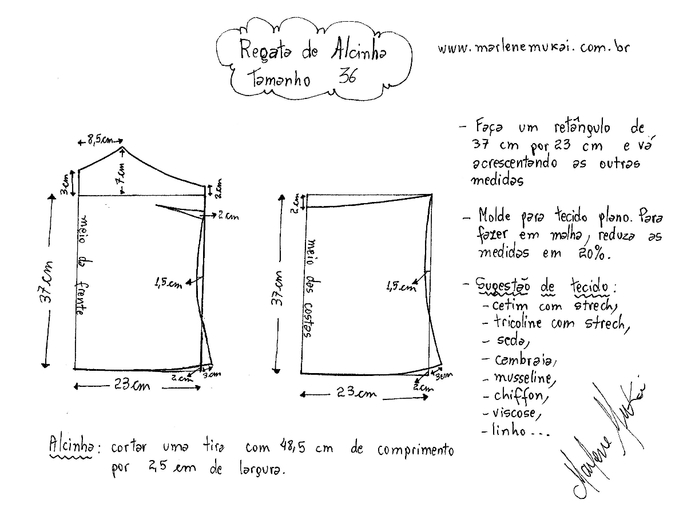 Regata de Alcinha
Tamanho 36
www.marlenemukai.com.br
8,5cm
3cm
7cm
2cm
2cm
meio da frente
37cm
1,5cm
2cm
3cm
23cm
2cm
meio das costas
37cm
1,5cm
2cm
3cm
23cm
- Faça um retângulo de
37 cm por 23 cm e vá
acrescentando as outras
medidas
- Molde para tecido plano. Para
fazer em malha, reduza as
medidas em 20%.
- Sugestão de tecido:
- cetim com strech,
- tricoline com strech,
- seda,
- cambraia,
- musseline,
- chiffon,
- viscose,
- linho...
Alcinha: cortar uma tira com 48,5 cm de comprimento
por 2,5 cm de largura.
Marlene Mukai